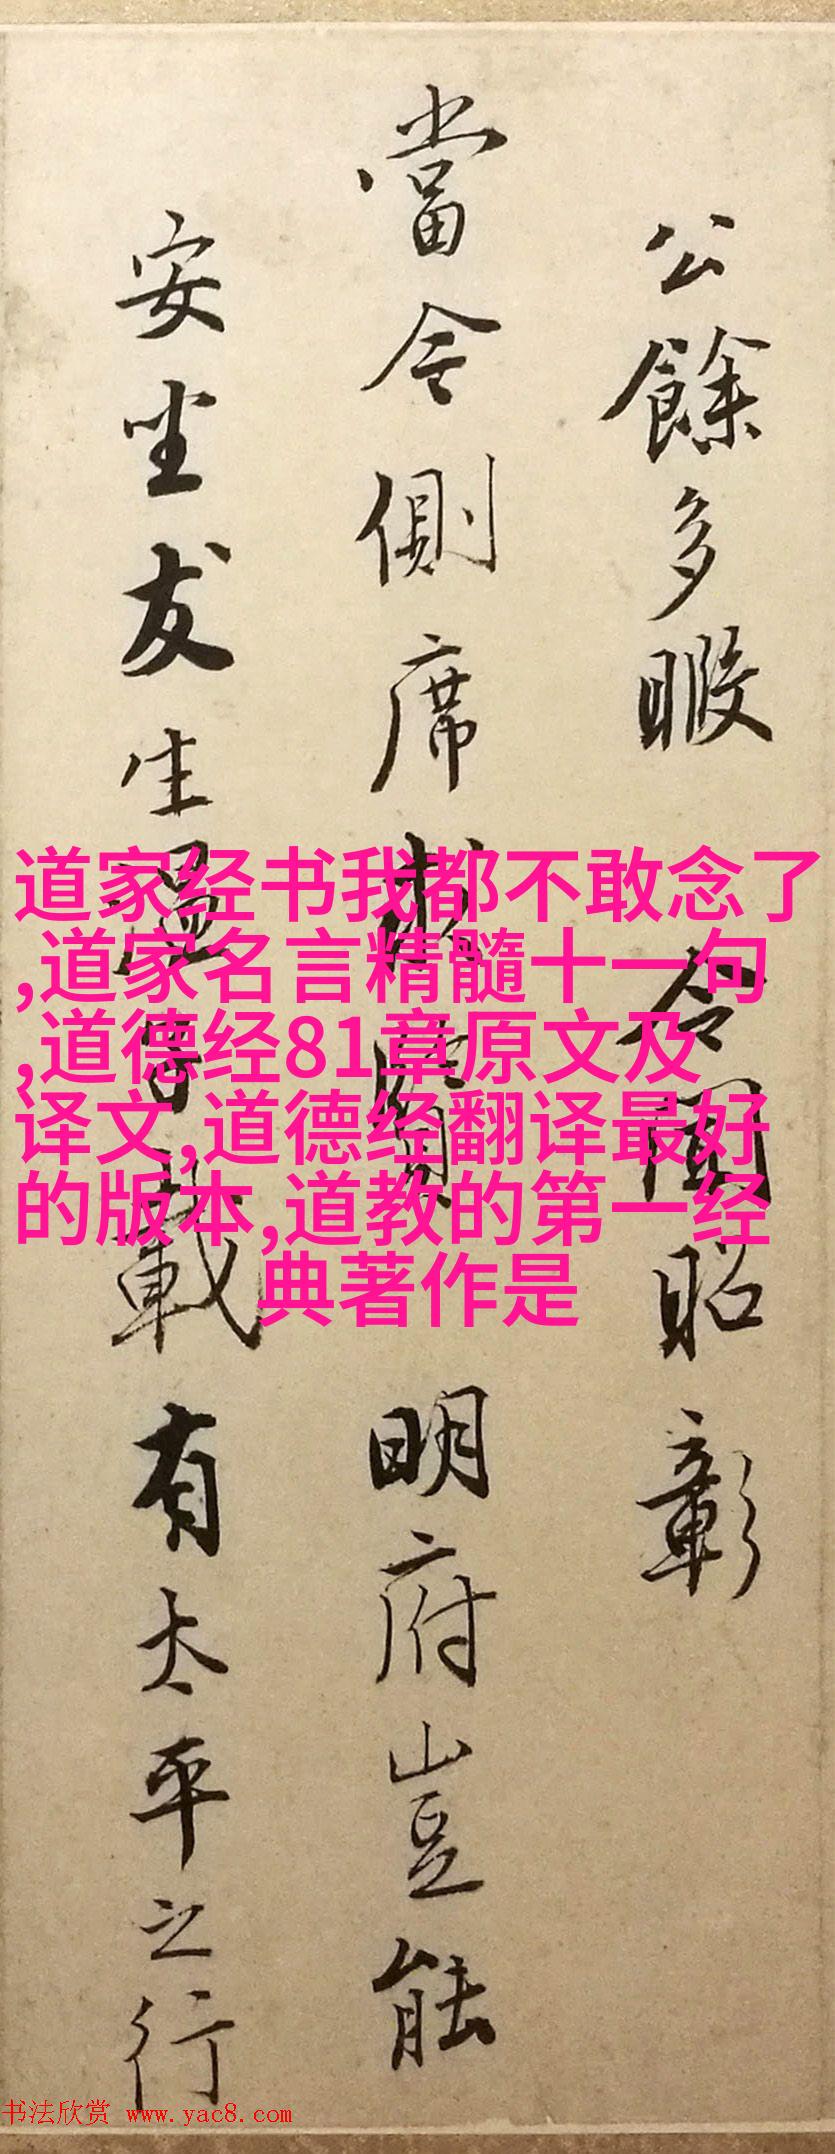 公餘多暇 令聞昭彰
當今側席求賢明府豈能
安坐友生還書載有太平之行
道家经书我都不敢念了
,道家名言精髓十一句
,道德经81章原文及
译文,道德经翻译最好
的版本,道教的第一经
典著作是
书法欣赏 www.yac8.com